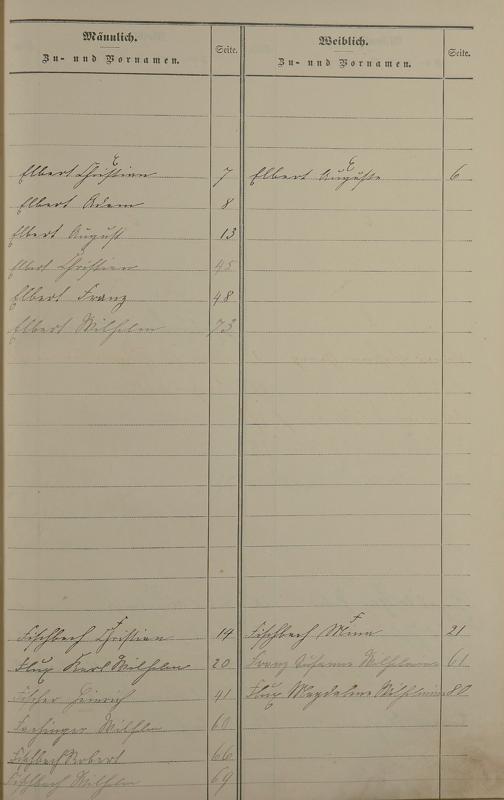 Männlich.
Zu- und Vornamen.
Seite.
Weiblich.
Zu- und Vornamen.
Seite.
E
Elbert Christian 7
Elbert Adam 8
Elbert August 13
Elbert Christian 45
Elbert Franz 48
Elbert Wilhelm 73
E
Elbert Auguste 6
F
Fischbach Christian 14
Flux Karl Wilhelm 20
Fischer Heinrich 41
Wilhelm 60
Fischbach Robert 66
Fischbach Wilhelm 69
F
Fischbach Minna 21
Franz Wilhelmine 61
Flux Magdalene Wilhelmine 80